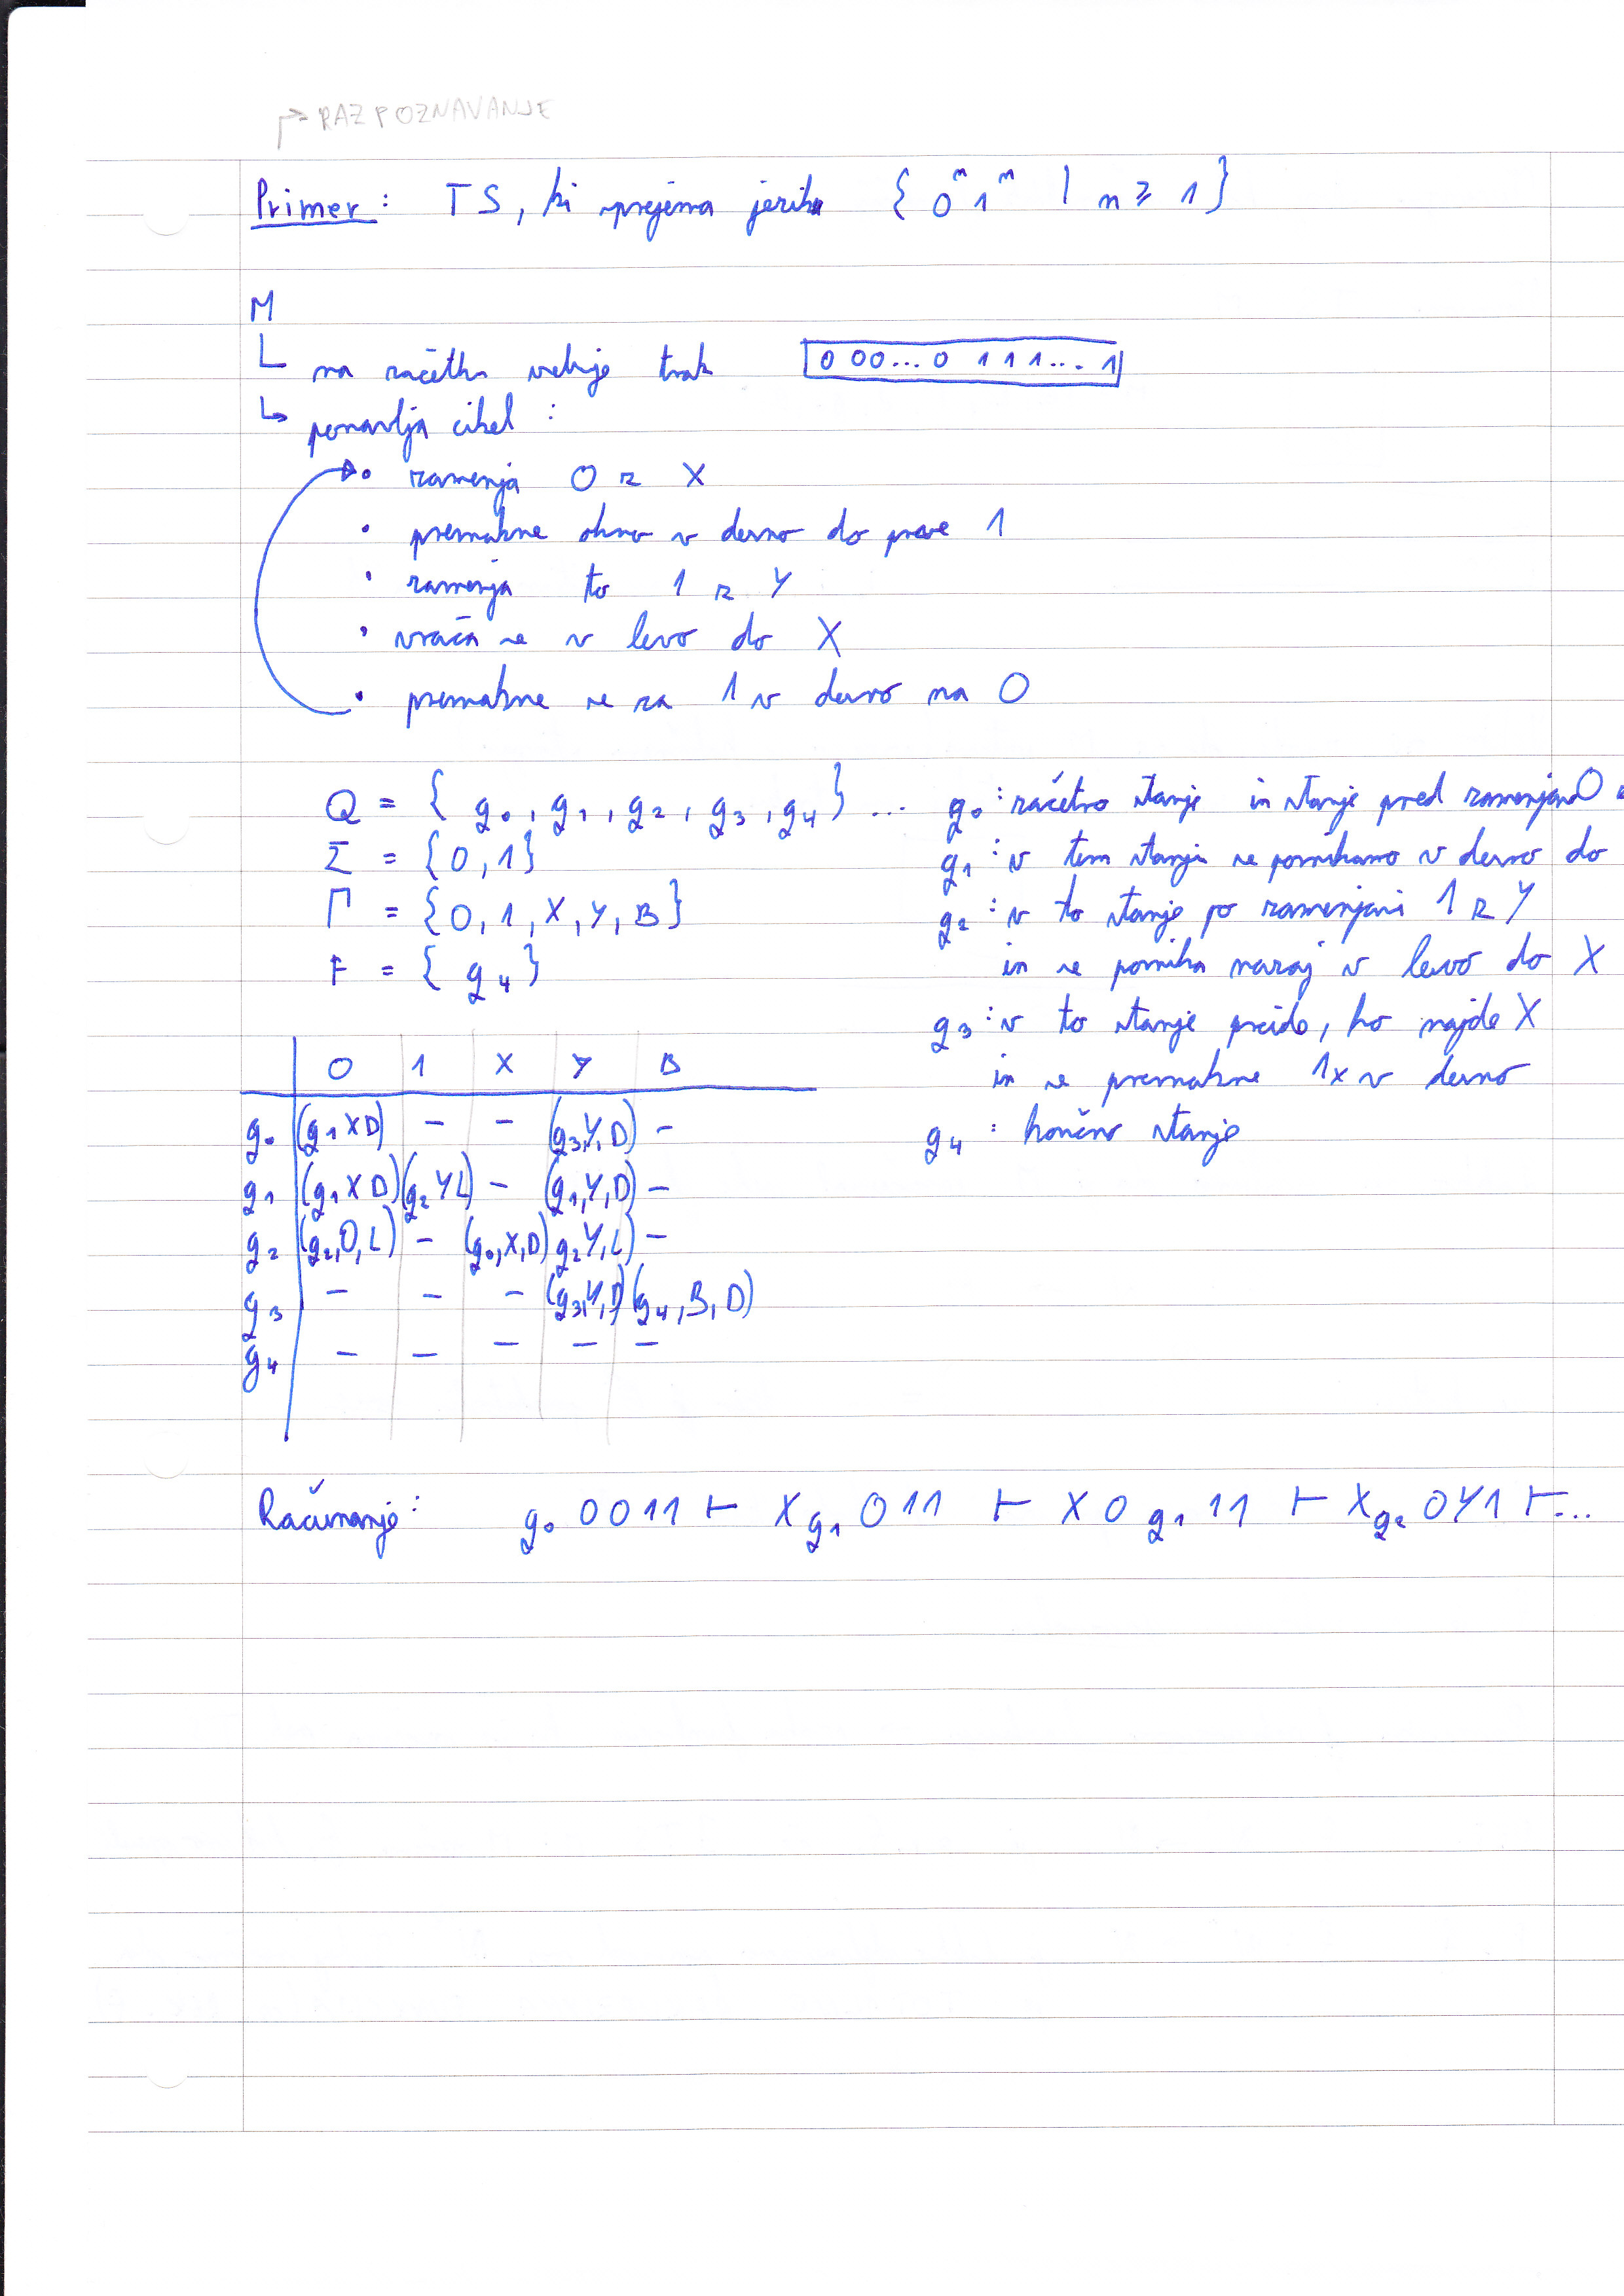 → RAZPOZNAVANJE
Primer: TS, ki sprejema jezik { 0ⁿ1ⁿ | n ≥ 1 }
M
↳ na začetku vsebuje trak 000...0 111...1
↳ ponavlja cikel :
• zamenja 0 z X
• premakne okno v desno do prve 1
• zamenja to 1 z Y
• vrača se v levo do X
• premakne se za 1 v desno na 0
Q = { q₀, q₁, q₂, q₃, q₄ } ... q₀ : začetno stanje in stanje pred zamenjavo 0
Σ = {0, 1} q₁ : v tem stanju se pomikamo v desno do
Γ = {0, 1, X, Y, B} q₂ : v to stanje po zamenjavi 1 z Y
F = { q₄ } in se pomika nazaj v levo do X
q₃ : v to stanje preide, ko najde X
in se premakne 1x v desno
q₄ : končno stanje
0 1 X Y B
q₀ (q₁ X D) - - (q₃, Y, D) -
q₁ (q₁ X D) (q₂ Y L) - (q₁, Y, D) -
q₂ (q₂, 0, L) - (q₀, X, D) q₂ Y, L) -
q₃ - - - (q₃, Y, D) (q₄, B, D)
q₄ - - - - -
Računanje: q₀ 0011 ⊢ X q₁ 011 ⊢ X 0 q₁ 11 ⊢ X q₂ 0Y1 ⊢...